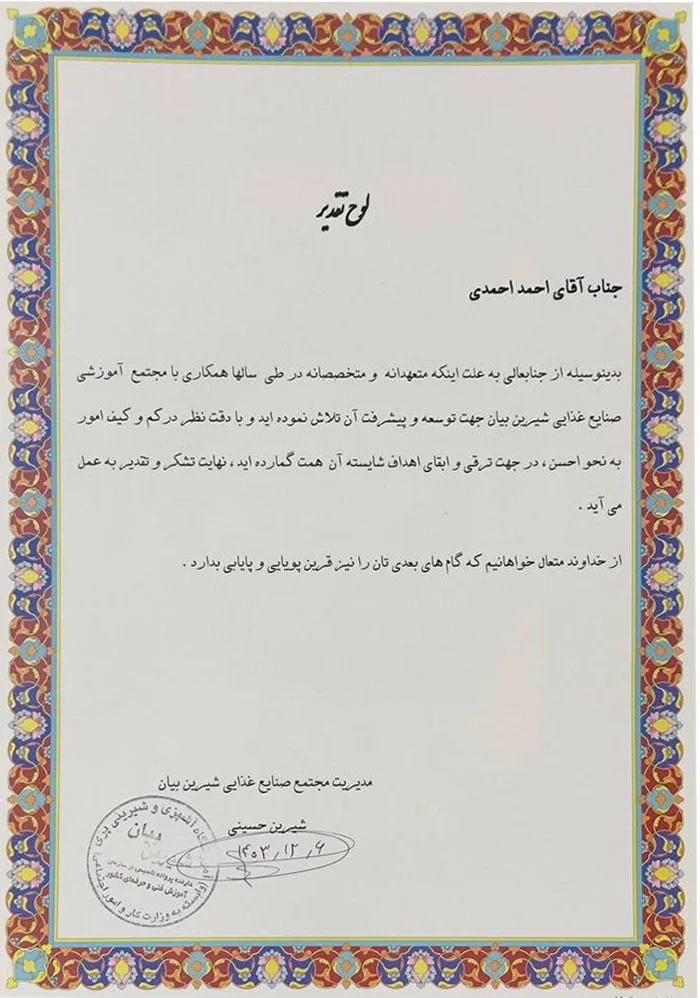 لوح تقدیر
جناب آقای احمد احمدی
بدینوسیله از جنابعالی به علت اینکه متعهدانه و متخصصانه در طی سالها همکاری با مجتمع آموزشی
صنایع غذایی شیرین بیان جهت توسعه و پیشرفت آن تلاش نموده اید و با دقت نظر درکم و کیف امور
به نحو احسن ، در جهت ترقی و ابقای اهداف شایسته آن همت گمارده اید ، نهایت تشکر و تقدیر به عمل
می آید .
از خداوند متعال خواهانیم که گام های بعدی تان را نیز قرین پویایی و پایایی بدارد .
مدیریت مجتمع صنایع غذایی شیرین بیان
شیرین حسینی
۱۴۰۳,۱۲,۶
آشپزی و شیرینی پزی
بیان
دارنده پروانه تاسیس از سازمان
آموزش فنی و حرفه‌ای کشور
(وابسته به وزارت کار و امور اجتماعی)